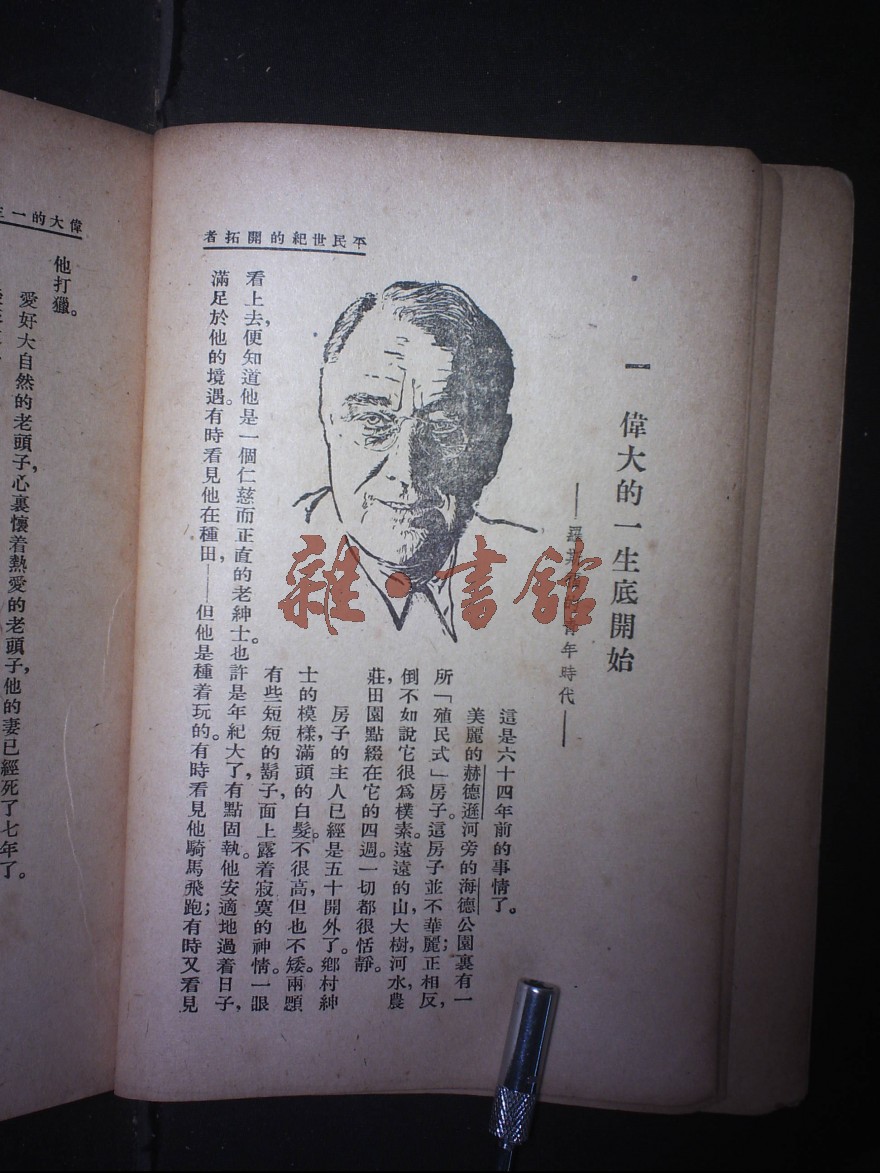 平民世紀的開拓者
一 偉大的一生底開始
——羅斯福的青年時代——
這是六十四年前的事情了。
美麗的赫德遜河旁的海德公園裏有一
所「殖民式」房子。這房子並不華麗;正相反,
倒不如說它很爲樸素。遠遠的山,大樹,河水,農
莊田園點綴在它的四週。一切都很恬靜。
房子的主人已經是五十開外了。鄉村紳
士的模樣,滿頭的白髮。不很高,但也不矮。兩顋
有些短短的鬍子,面上露着寂寞的神情。一眼
看上去,便知道他是一個仁慈而正直的老紳士。也許是年紀大了,有點固執。他安適地過着日子,
滿足於他的境遇。有時看見他在種田——但他是種着玩的。有時看見他騎馬飛跑;有時又看見
偉大的一
他打獵。
愛好大自然的老頭子,心裏懷着熱愛的老頭子,他的妻已經死了七年了。
雜·書館